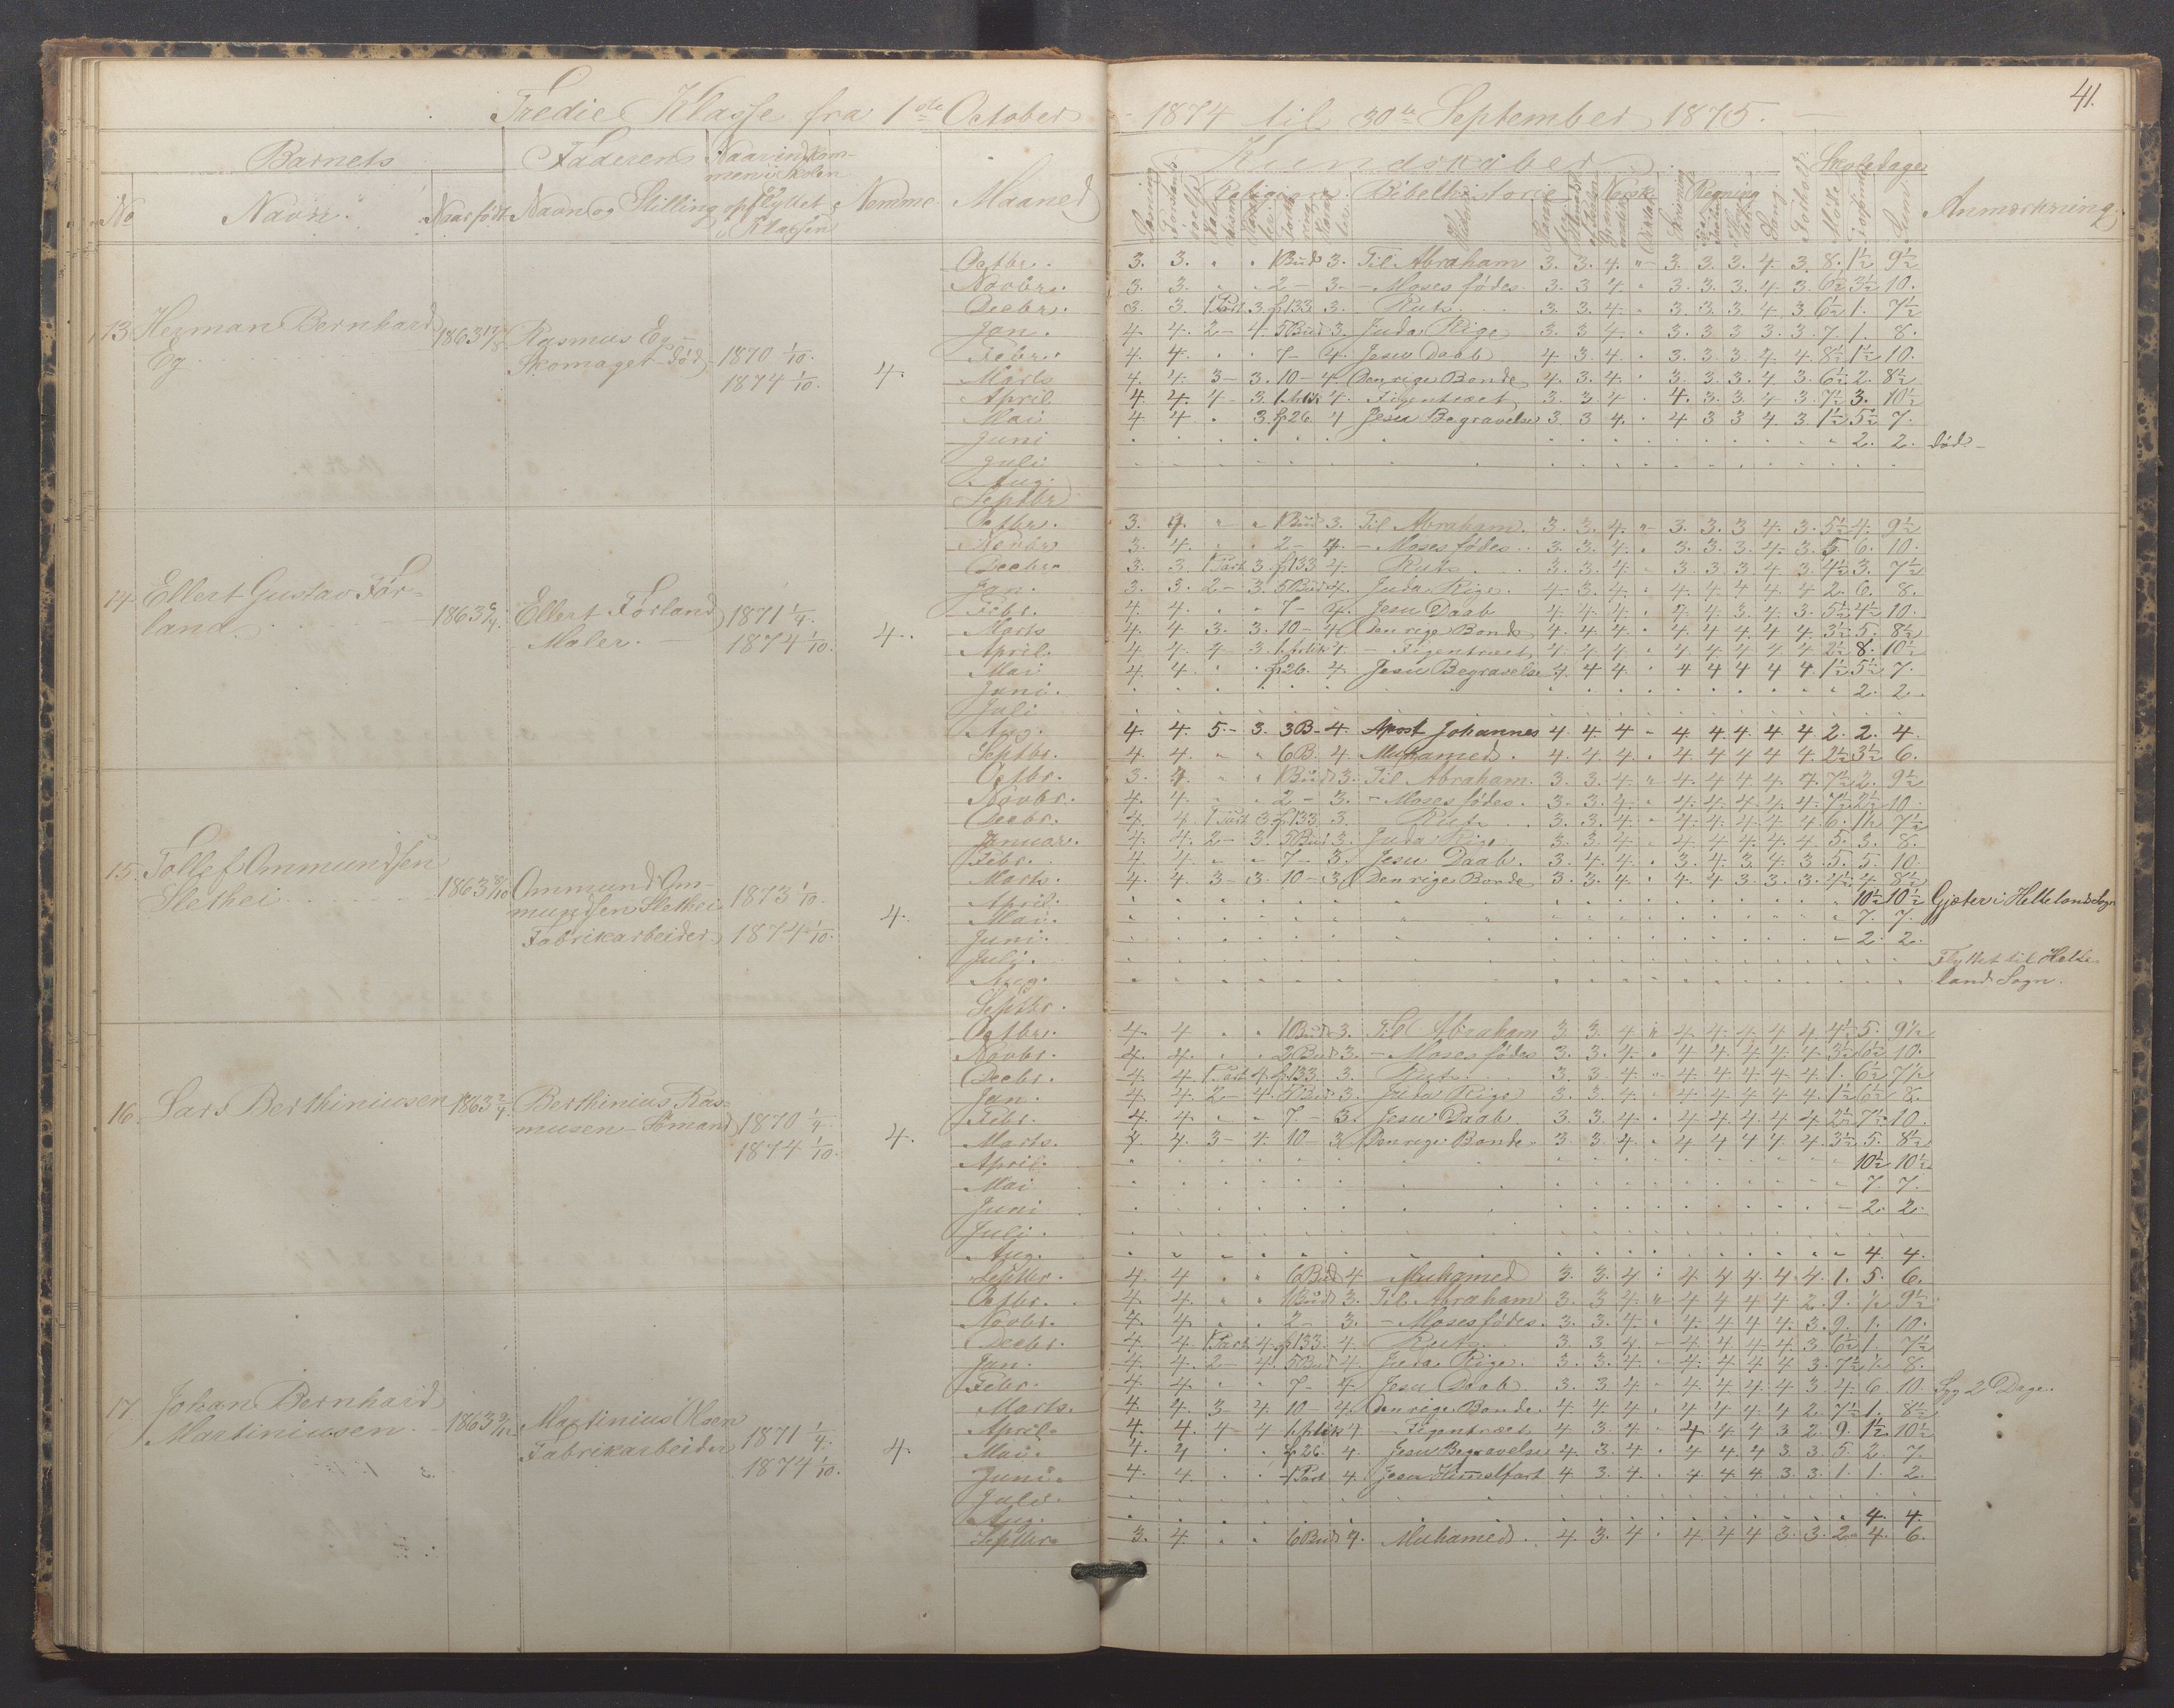 41.
Tredie Klasse fra 1ste October 1874 til 30te September 1875.
Barnets Faderens Naar indkommen i Skolen Nemme Maaned Kundskaber Skoledage Anmærkning
No Navn. Naar født Navn og Stilling opflyttet i Klassen Religion Bibelhistorie Norsk Regning Sang Forhold Møde Sum
13 Herman Bernhard Eg 1863 Rasmus Eg - Skomager - død 1870 1/10. 1874 1/10. 4.
Octbr. 3. 3. " " 1 Bud 3. Til Abraham 3. 3. 4. " 3. 3. 3. 4. 3. 8. 1½ 9½
Novbr. 3. 3. " " 2 - 3. - Moses fødes. 3. 3 4. " 3. 3. 3. 4. 3. 6½ 3½ 10.
Decbr. 3. 3. 1 Part 3. p133 3. Rut 3. 3. 4. " 3. 3. 3. 4. 3 6½ 1. 7½
Jan. 4. 4. 2 - 4. 5 Bud 3. Juda Rige 3. 3 4. " 3. 3 3 3. 3. 7. 1. 8.
Febr. 4. 4. " " 7 - 4. Jesu Daab 4. 3. 4. " 3. 3. 3. 4. 4. 8½ 1½ 10.
Marts 4. 4. 3 - 3. 10 - 4. Den rige Bonde 4. 3. 4. " 3. 3. 3. 4. 3. 6½ 2. 8½
April 4. 4. 4 - 3. 4. Figentræet 3. 3. 4 " 4. 3. 3 4 3. 7½ 3. 10½
Mai 4. 4. " 3. p26. 4 Jesu Begravelse 3. 3 4. " 4 3 3 4 3. 1½ 5½ 7.
Juni 2. 2. død -
Juli
Aug.
Septbr
14 Ellert Gustav Førland 1863 Ellert Førland Maler. 1871 1/4. 1874 1/10. 4.
Octbr. 3. 4. " " 1 Bud 3. Til Abraham. 3. 3. 4. " 3. 3. 3 4. 3. 5½ 4. 9½
Novbr 3. 4. " " 2 - 4. - Moses fødes. 3. 3. 4. " 3. 3. 3. 4. 3. 5 6. 10.
Decbr. 3. 3. 1 Part 3. p133 4. Rut 3. 3. 4. " 3. 3. 3. 4 3. 4½ 3. 7½
Jan. 3. 3. 2 - 3. 5 Bud 4. Juda Rige. 4. 3. 4. " 4. 4. 4. 4. 4 2. 6. 8.
Febr. 4. 4. " " 7 - 4. Jesu Daab 4. 4. 4. " 4. 4. 3. 4. 3. 5½ 4½ 10.
Marts 4. 4. 3. 3. 10 - 4 Den rige Bonde 4. 4. 4. " 4. 4. 4. 4. 4. 3½ 5. 8½
April. 4. 4. 4 - 3. 4. - Figentræet 4. 4. 4. " 4. 4. 4. 4. 4. 2½ 8. 10½
Mai 4. 4. " " p26. 4. Jesu Begravelse 4. 4 4. " 4 4 4 4 4. 1½ 5½ 7.
Juni. 2. 2.
Juli
Aug. 4. 4. 5. - 3. 3 B. 4. Apost Johannes 4. 4. 4 " 4. 4. 4. 4. 4. 2. 2. 4.
Septbr. 4. 4. " " 6 B. 4. Muhamed. 4. 4. 4. " 4. 4. 4. 4. 4. 2½ 3½ 6.
15. Tollef Ommundsen Slethei 1863 Ommund Ommundsen Slethei Fabrikarbeider 1873 1/10. 1874 1/10. 4.
Octbr. 3. 4. " " 1 Bud 3. Til Abraham. 3. 3. 4. " 4. 4. 4. 4. 4. 7½ 2. 9½
Novbr. 4. 4. " " 2 - 3. - Moses fødes. 3. 3. 4. " 4. 4. 4. 4. 4. 7½ 2½ 10.
Decbr. 4. 4. 1 Part 3 p133 3. Rut 3. 3. 4. " 4. 4. 4. 4. 4 6. 1½ 7½
Januar. 4. 4. 2 - 3. 5 Bud 3. Juda Rige 3. 3. 4. " 4. 4. 4. 4. 4 5. 3. 8.
Febr. 4. 4. " " 7 - 3. Jesu Daab. 3. 4. 4. " 3. 4. 3. 4. 3. 5. 5. 10.
Marts. 4. 4. 3 - 3. 10 - 3. Den rige Bonde 3. 3. 4. " 4. 4 3. 3. 3. 4½ 4. 8½
April. 10½ 10½ Gjæter i Helleland Sogn
Mai. 7. 7.
Juni. 2. 2.
Juli. Flyttet til Helle-
Aug. land Sogn.
Septbr.
16. Lars Berthiniusen 1863 Berthinius Rasmusen - Sømand 1870 1/4. 1874 1/10. 4.
Octbr. 4. 4 " " 1 Bud 3. Til Abraham 3. 3. 4 " 4. 4. 4. 4. 4. 4½ 5. 9½
Novbr. 4. 4. " " 2 Bud 3. - Moses fødes 3. 3. 4. " 4. 4. 4. 4. 4. 3½ 6½ 10.
Decbr. 4. 4. 1 Part 4. p133. 3. Rut 3. 3. 4. " 4. 4. 4. 4. 4. 1. 6½ 7½
Jan. 4. 4. 2 - 4. 5 Bud 3. Juda Rige 3. 3. 4. " 4. 4. 4. 4. 4. 1½ 6½ 8.
Febr. 4. 4. " " 7 - 3. Jesu Daab 3. 3. 4. " 4. 4. 4. 4. 4. 2½ 7½ 10.
Marts. 4. 4. 3 - 4. 10 - 3. Den rige Bonde. 3. 3. 4. " 4. 4. 4. 4. 4. 3½ 5. 8½
April. 10½ 10½
Mai 7. 7.
Juni 2. 2.
Juli.
Aug. 4. 4.
Septbr. 4. 4 " " 6 Bud 4 - Muhamed 3. 3. 4 " 4. 4 4. 4. 4. 1. 5. 6.
17 Johan Bernhard Martiniusen. 1863 Martinius Olsen Fabrikarbeider 1871 1/4. 1874 1/10. 4.
Octbr. 4. 4. " " 1 Bud 3. Til Abraham 3. 3. 4. " 4 4 4. 4 2. 9. ½ 9½
Novbr. 4. 4. " " 2 - 3. - Moses fødes. 3. 3. 4. " 4. 4. 4. 4. 3. 9. 1. 10.
Decbr. 4. 4. 1 Part 4. p133. 4. Rut 3. 3. 4. " 4. 4. 4. 4. 3. 6½ 1. 7½
Jan. 4. 4. 2 - 4. 5 Bud 4. Juda Rige. 3. 3. 4. " 4. 4. 4. 4 3. 7½ ½ 8.
Febr. 4. 4. " " 7 - 4. Jesu Daab 3. 3. 4. " 4. 4. 4. 4 3. 4. 6. 10 Syg 2 Dage.
Marts. 4. 4. 3 - 4. 10 - 4. Den rige Bonde. 4. 4. 4. " 4. 4. 4. 4. 2. 7½ 1. 8½
April. 4. 4. 4 - 4 4 - Figentræet 4 3. 4. " 4. 4. 4 3 2. 9. 1½ 10½
Mai. 4. 4 " " p26. 4. Jesu Begravelse 4. 3. 4. " 4. 4. 4. 3. 3. 5. 2. 7.
Juni. 4. 4. " " 1 Part 4. Jesu Himelfart 4. 3. 4. " 4. 4. 4. 3. 3. 1. 1. 2.
Juli.
Aug. 4. 4.
Septbr. 3. 4. " " 6 Bud 4. Muhamed. 4. 3. 4 " 4. 4 4 3. 3. 2. 4. 6.